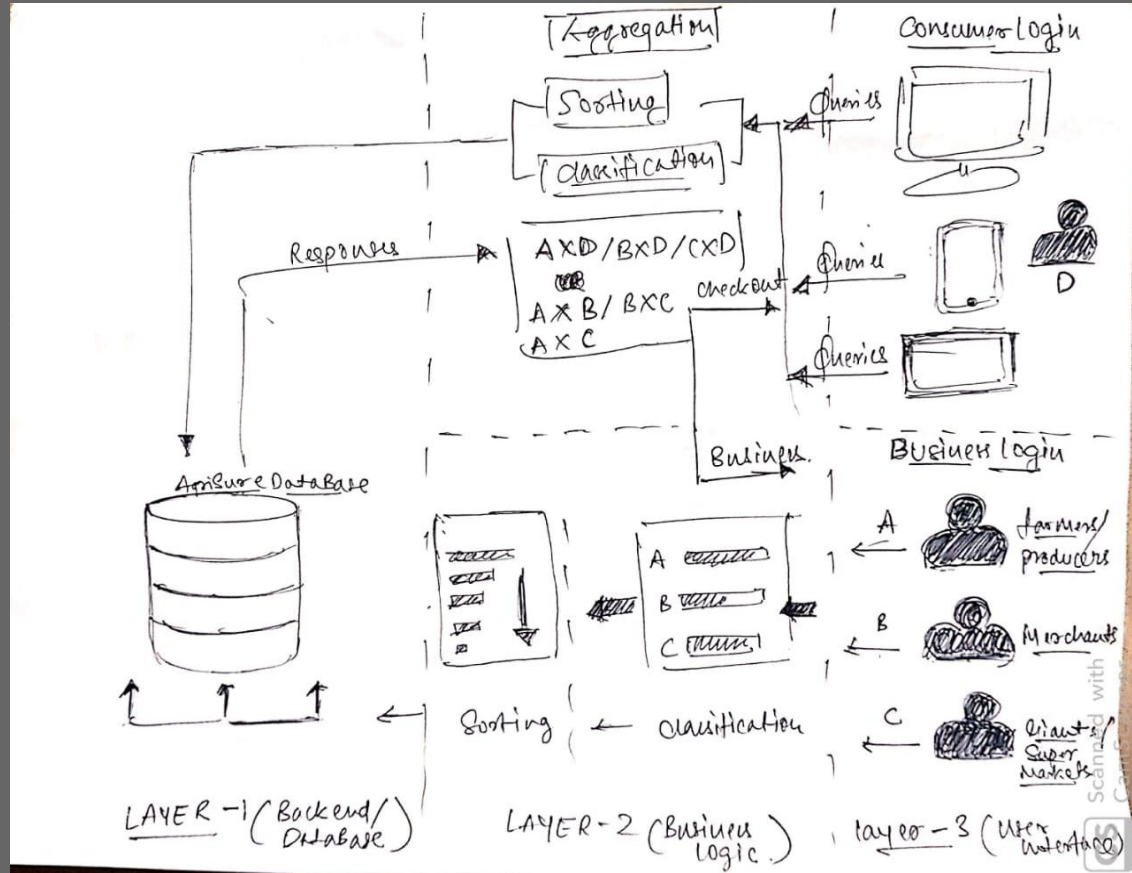 Aggregation
Consumer Login
Sorting
Queries
Classification
Responses
AXD/BXD/CXD
Queries
D
checkout
AXB/BXC
AXC
Queries
Business
Business Login
AgriSure DataBase
A
farmers/
producers
A
B
C
B
Merchants
C
Giants/
Super
Markets
Sorting
Classification
LAYER-1 (Backend/
DataBase)
LAYER-2 (Business
Logic.)
Layer-3 (User
interface)
Scanned with
CS